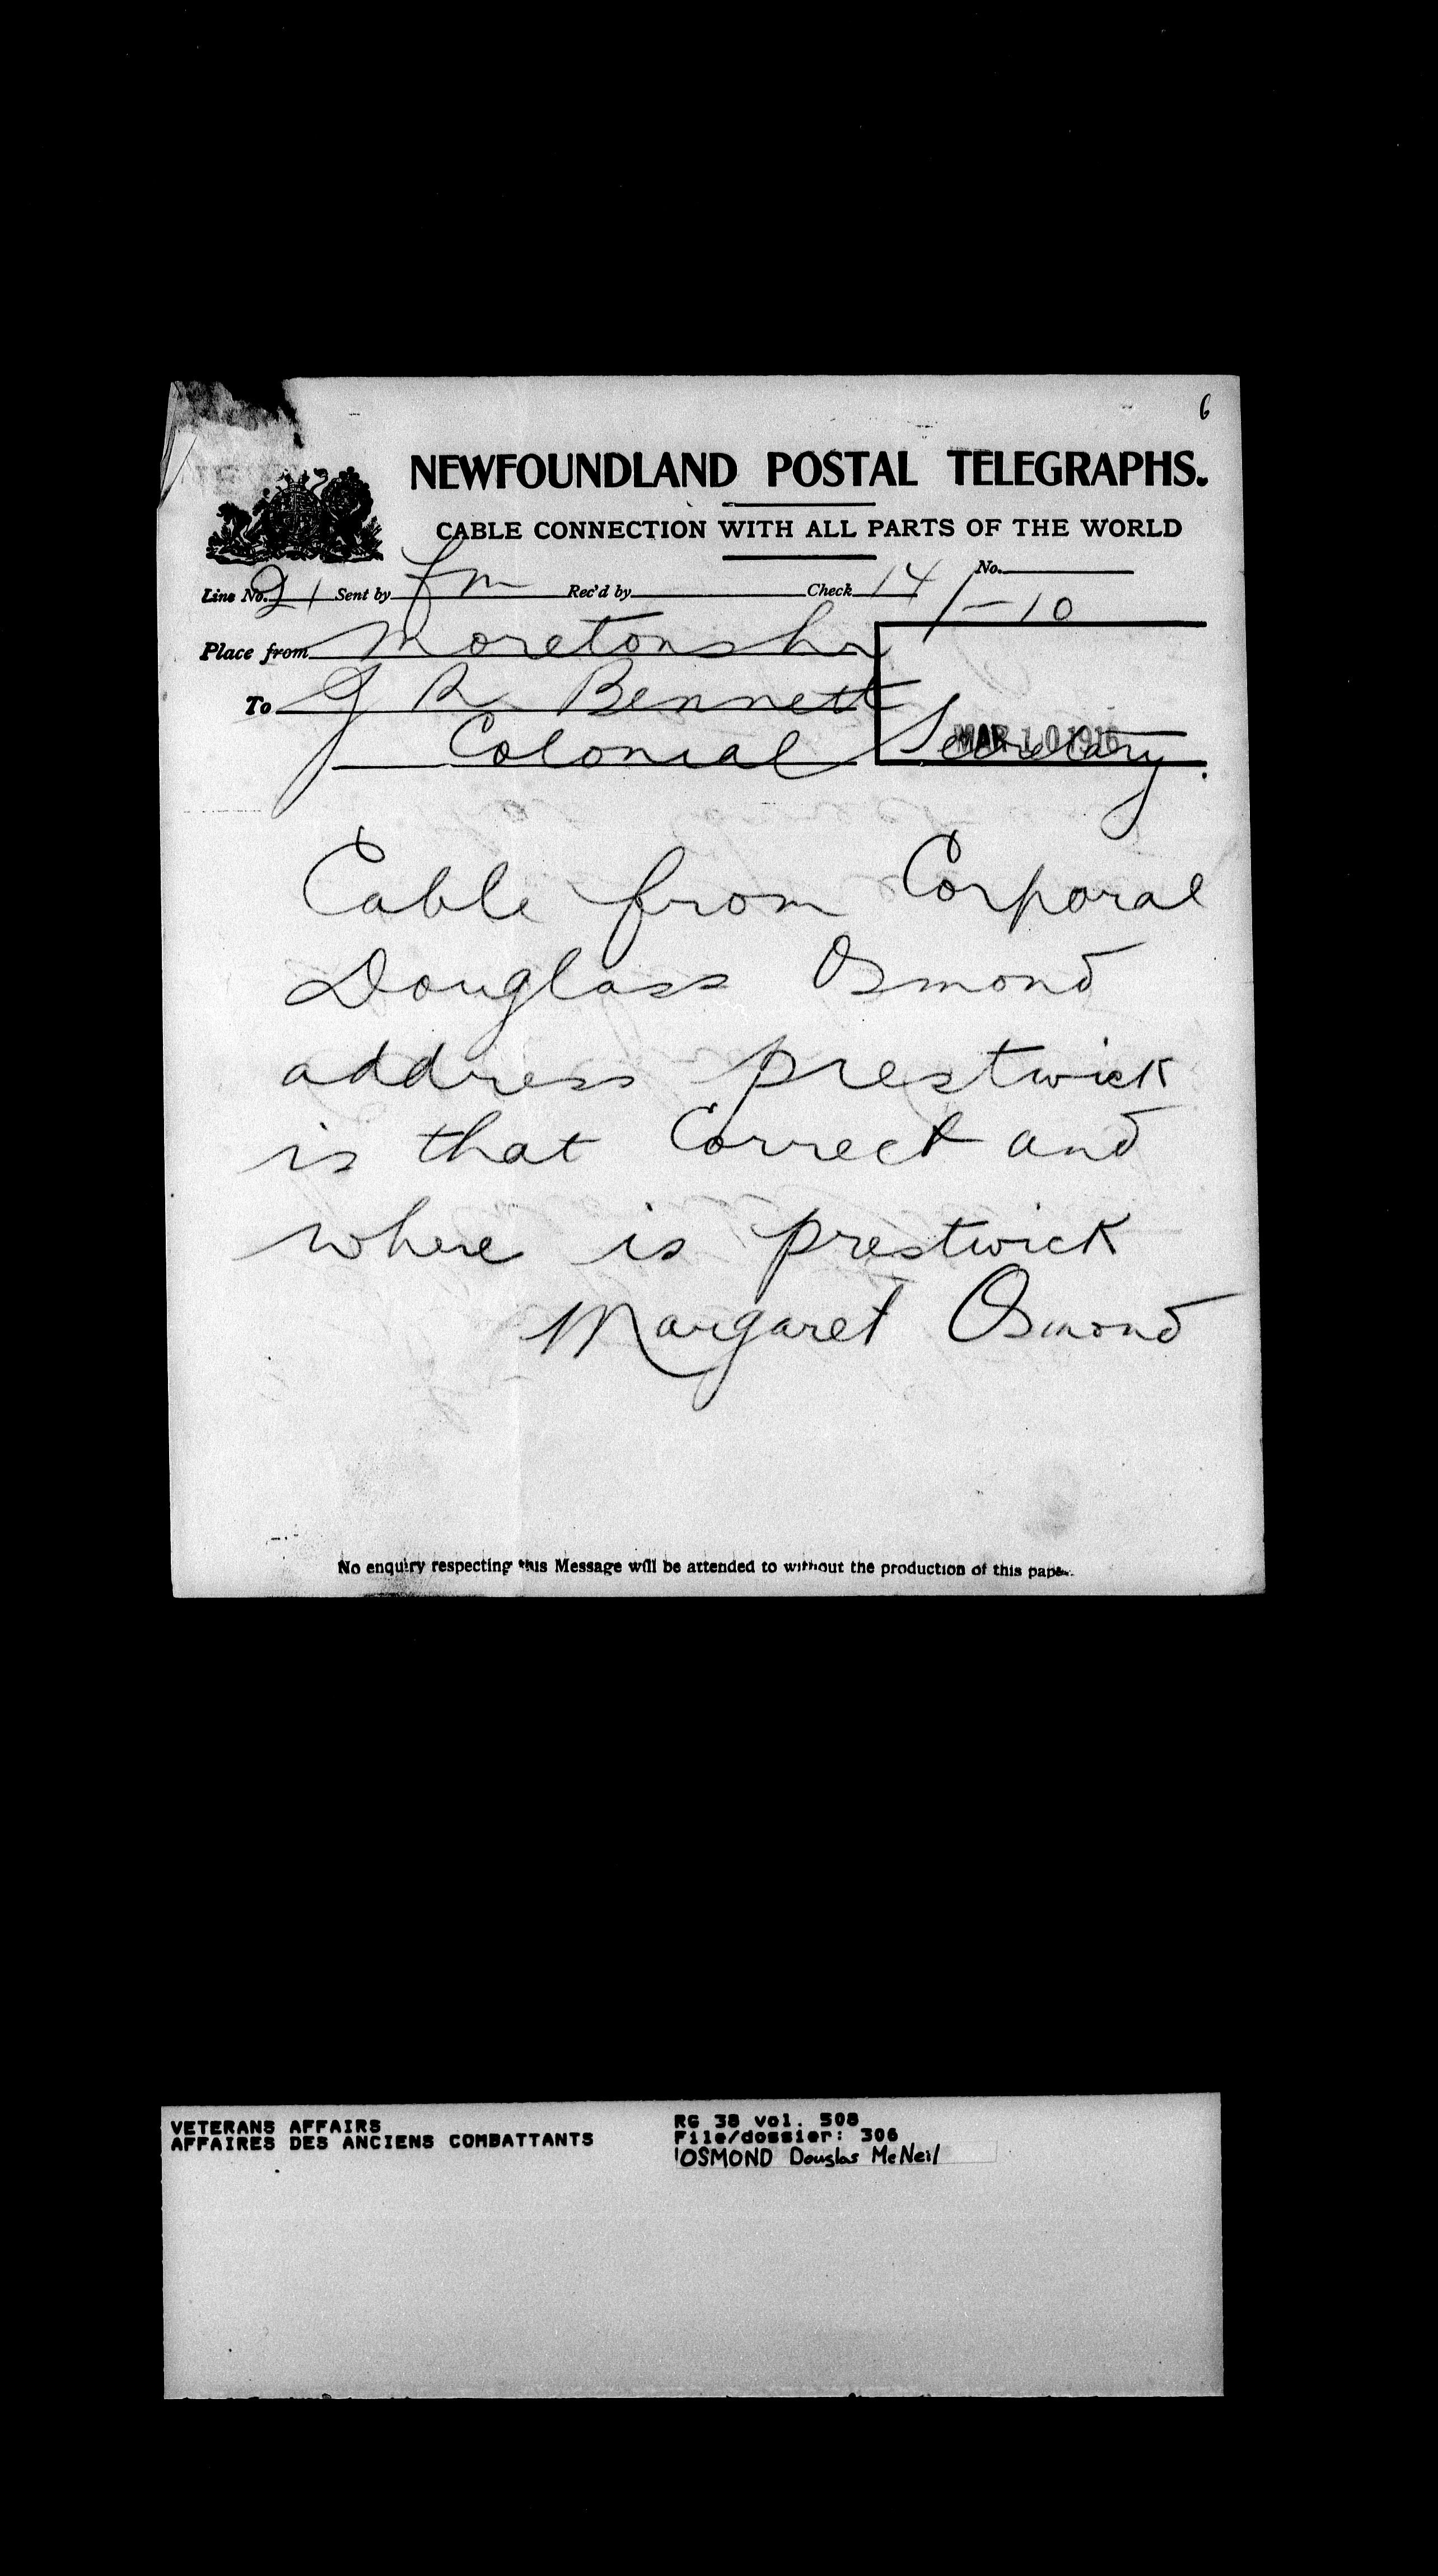 6
NEWFOUNDLAND POSTAL TELEGRAPHS.
CABLE CONNECTION WITH ALL PARTS OF THE WORLD
Line No. 21 Sent by fm Rec'd by Check 14/1-10 No.
Place from Moretons hr
To J R Bennett
Colonial Secretary.
MAR 10 1916
Cable from Corporal
Douglass Osmond
address prestwick
is that Correct and
where is prestwick
Margaret Osmond
No enquiry respecting this Message will be attended to without the production of this paper.
VETERANS AFFAIRS
AFFAIRES DES ANCIENS COMBATTANTS
RG 38 vol. 508
File/dossier: 306
OSMOND Douglas McNeil